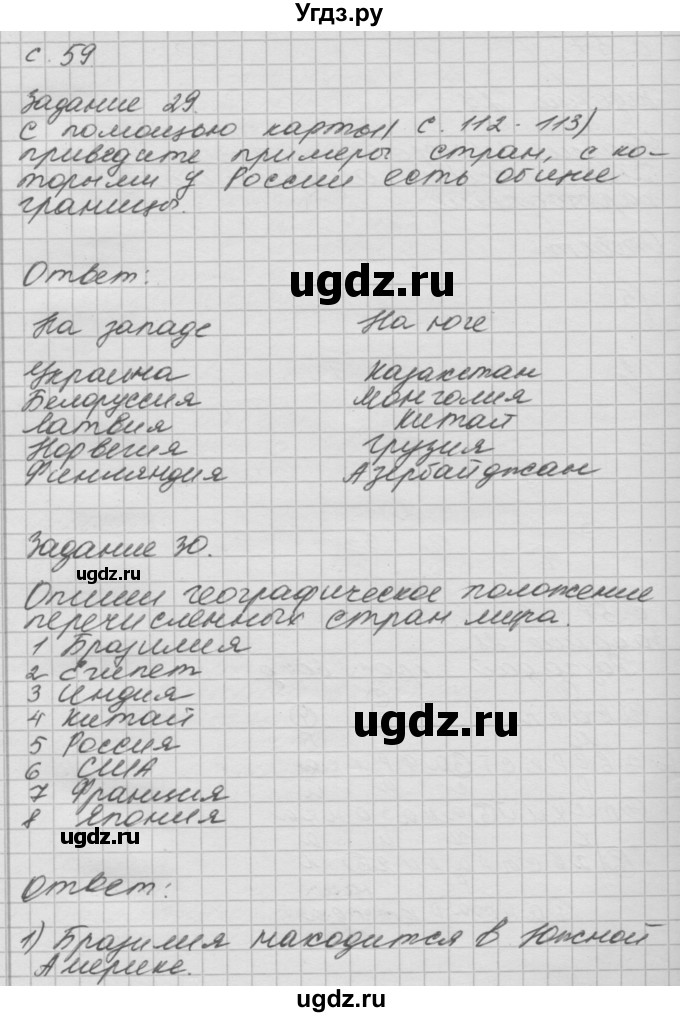 Угдз.ру
с. 59
Задание 29.
С помощью карты( с. 112 - 113)
приведите примеры стран, с ко-
торыми у России есть общие
границы.
Ответ:
ugdz.ru
На западе На юге
Украина Казахстан
Белоруссия Монголия
Латвия Китай
Норвегия Грузия
Финляндия Азербайджан
Задание 30.
ugdz.ru
Опиши географическое положение
перечисленных стран мира.
1 Бразилия
2 Египет
3 Индия
4 Китай
ugdz.ru
5 Россия
6 США
7 Франция
8 Япония
ugdz.ru
Ответ:
1) Бразилия находится в Южной
Америке.
ugdz.ru